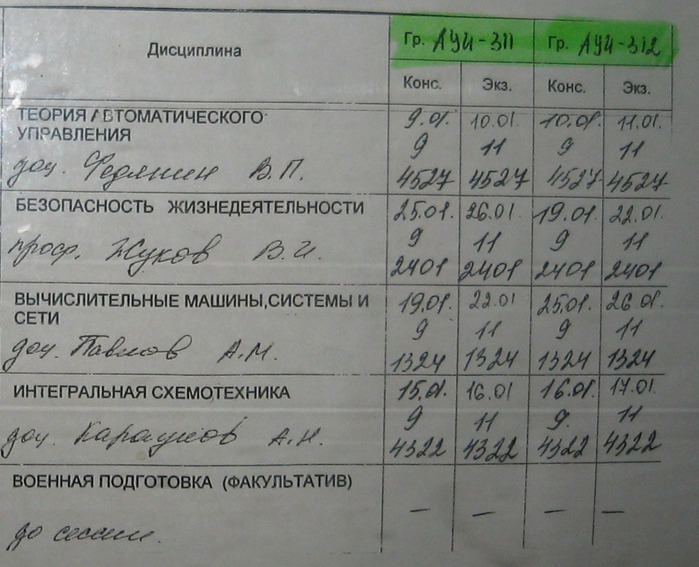 Дисциплина
Гр. АУЧ-311 Гр. АУЧ-312
Конс. Экз. Конс. Экз.
ТЕОРИЯ АВТОМАТИЧЕСКОГО
УПРАВЛЕНИЯ
доц. Федянин В.П.
9.01. 10.01. 10.01. 11.01.
9 11 9 11
4527 4527 4527 4527
БЕЗОПАСНОСТЬ ЖИЗНЕДЕЯТЕЛЬНОСТИ
проф. Жуков В.И.
25.01. 26.01. 19.01. 22.01.
9 11 9 11
2401 2401 2401 2401
ВЫЧИСЛИТЕЛЬНЫЕ МАШИНЫ,СИСТЕМЫ И
СЕТИ
доц. Павлов А.М.
19.01. 22.01 25.01. 26.01.
9 11 9 11
1324 1324 1324 1324
ИНТЕГРАЛЬНАЯ СХЕМОТЕХНИКА
доц. А.Н.
15.01. 16.01 16.01. 17.01.
9 11 9. 11
4322 4322 4322 4322
ВОЕННАЯ ПОДГОТОВКА (ФАКУЛЬТАТИВ)
до сессии.
— — — —